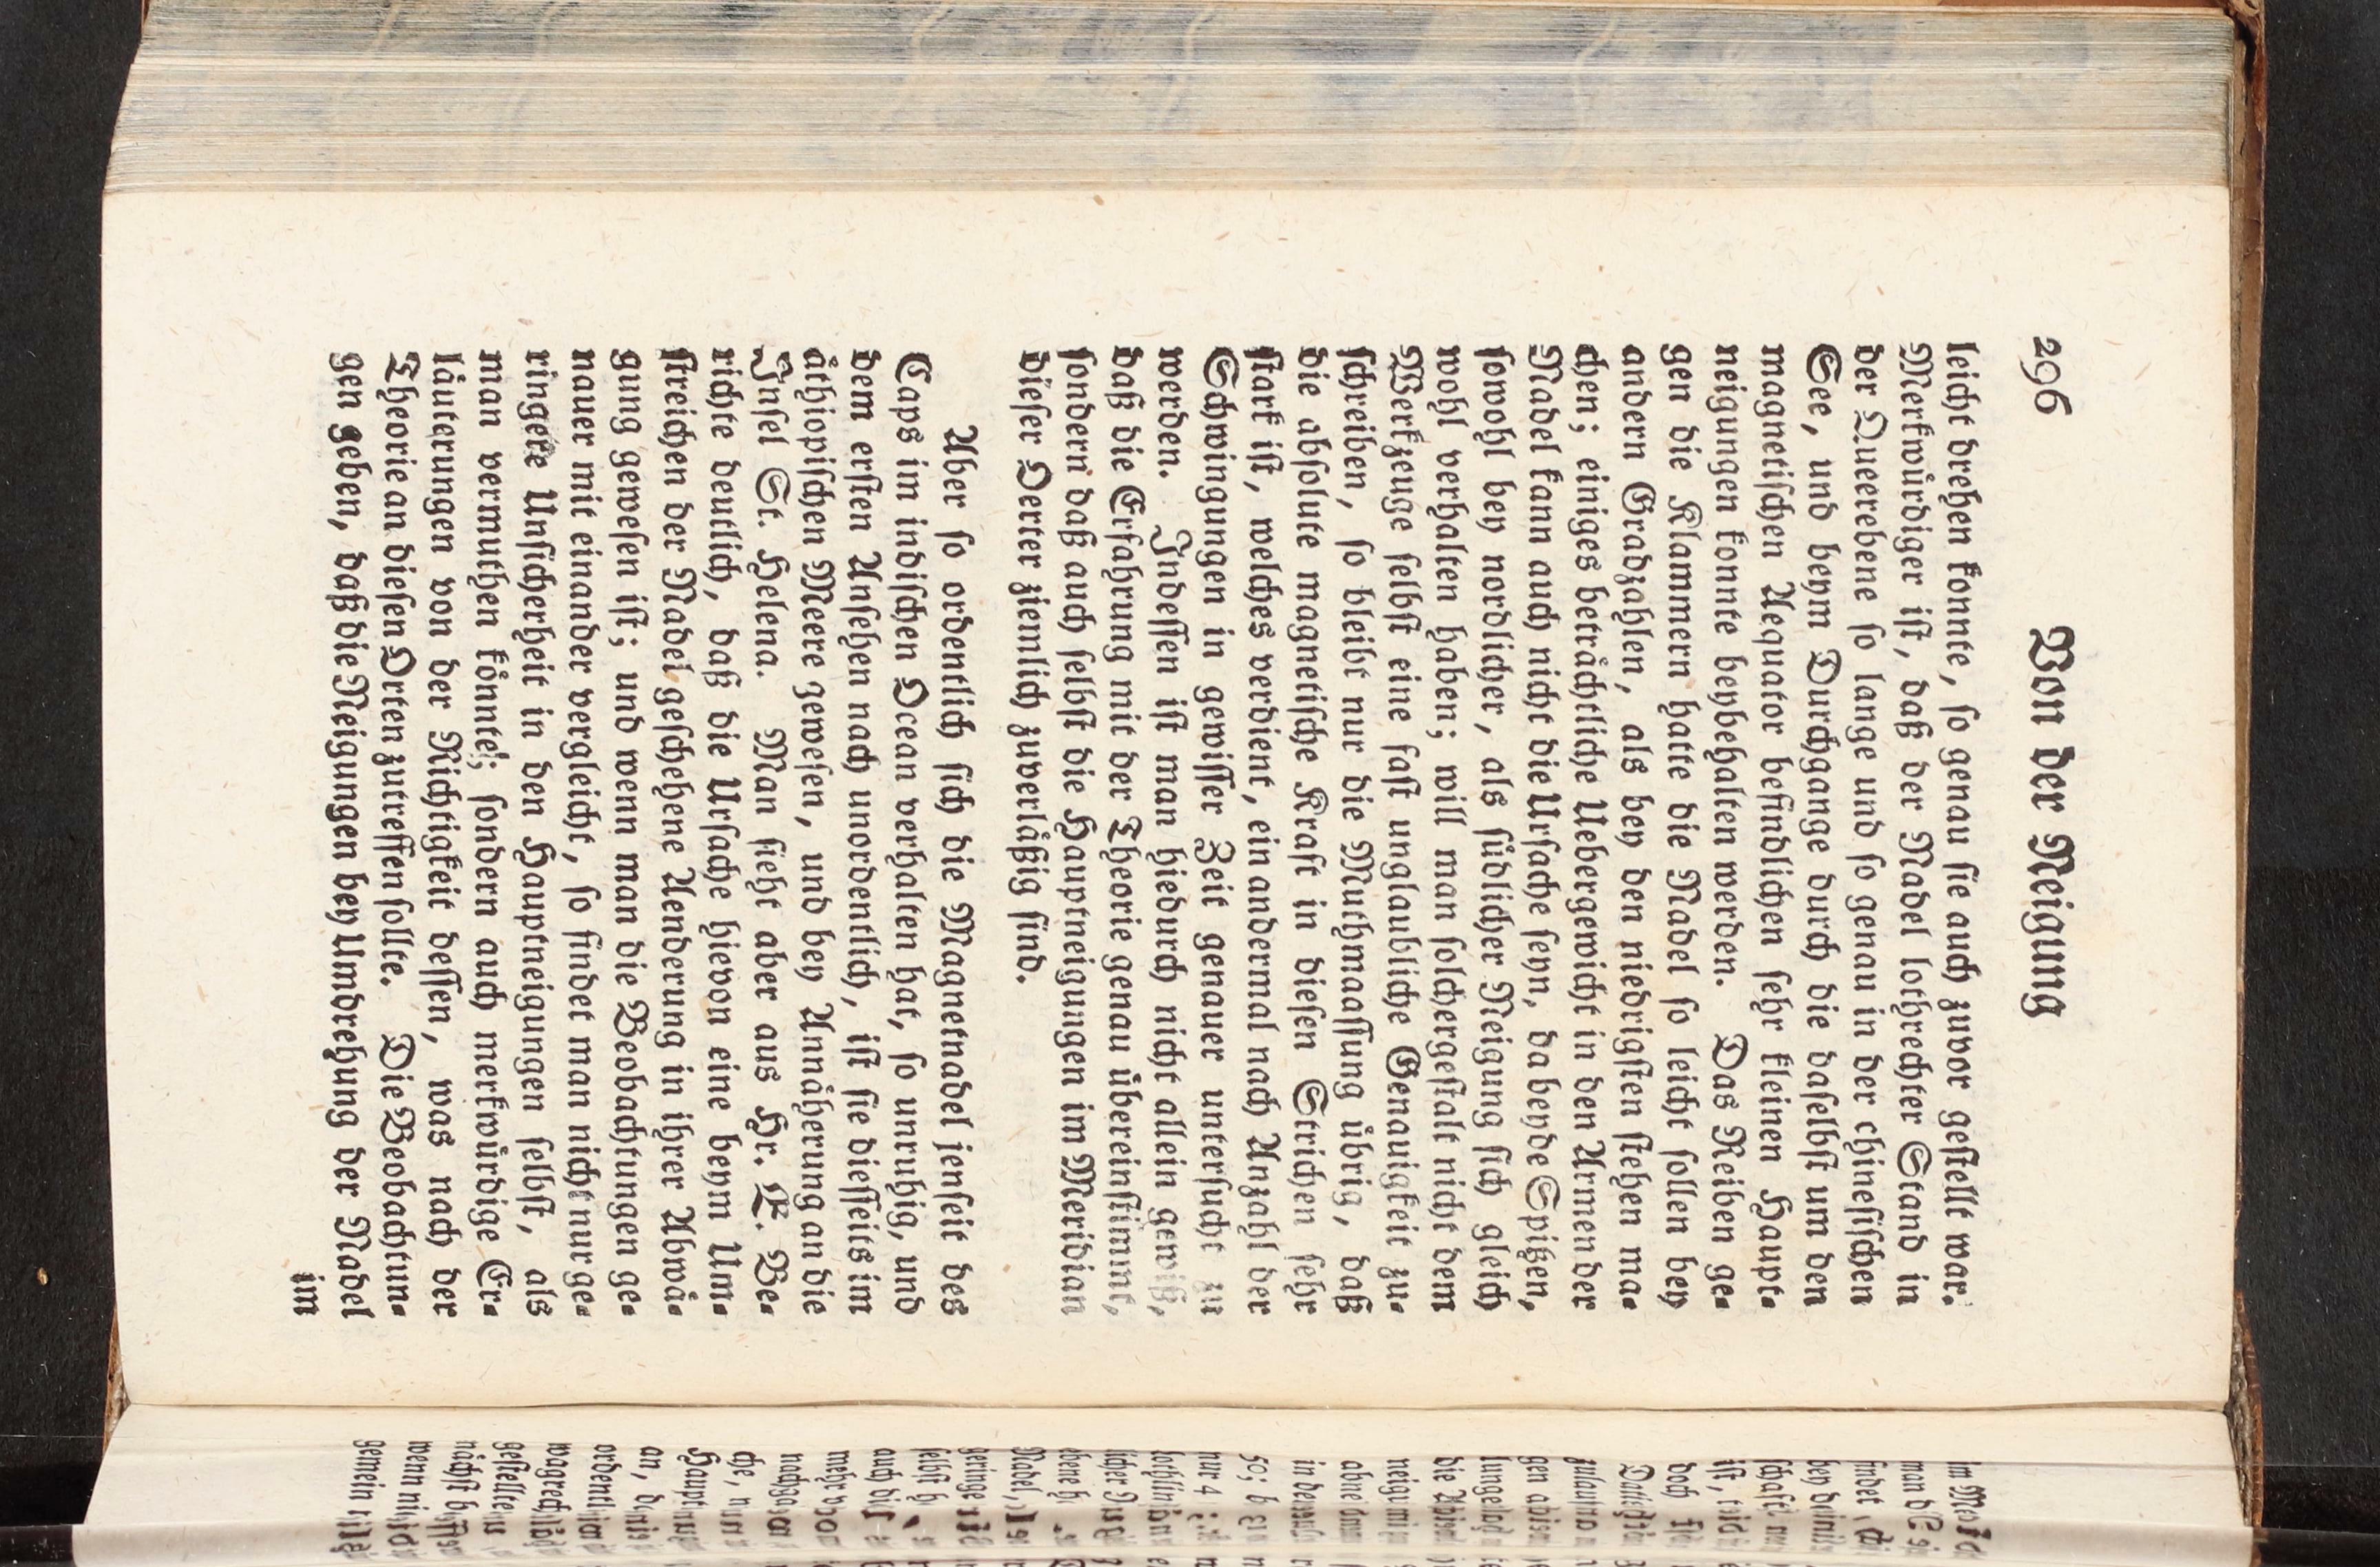 296 Von der Neigung
leicht drehen konnte, so genau sie auch zuvor gestellt war.
Merkwürdiger ist, daß der Nadel lothrechter Stand in
der Queerebene so lange und so genau in der chinesischen
See, und beym Durchgange durch die daselbst um den
magnetischen Aequator befindlichen sehr kleinen Haupt-
neigungen konnte beybehalten werden. Das Reiben ge-
gen die Klammern hatte die Nadel so leicht sollen bey
andern Gradzahlen, als bey den niedrigsten stehen ma-
chen; einiges beträchtliche Uebergewicht in den Armen der
Nadel kann auch nicht die Ursache seyn, da beyde Spitzen,
sowohl bey nordlicher, als südlicher Neigung sich gleich
wohl verhalten haben; will man solchergestalt nicht dem
Werkzeuge selbst eine fast unglaubliche Genauigkeit zu-
schreiben, so bleibt nur die Muthmaassung übrig, daß
die absolute magnetische Kraft in diesen Strichen sehr
stark ist, welches verdient, ein andermal nach Anzahl der
Schwingungen in gewisser Zeit genauer untersucht zu
werden. Indessen ist man hiedurch nicht allein gewiß,
daß die Erfahrung mit der Theorie genau übereinstimmt,
sondern daß auch selbst die Hauptneigungen im Meridian
dieser Oerter ziemlich zuverläßig sind.
Aber so ordentlich sich die Magnetnadel jenseit des
Caps im indischen Ocean verhalten hat, so unruhig, und
dem ersten Ansehen nach unordentlich, ist sie diesseits im
äthiopischen Meere gewesen, und bey Annäherung an die
Insel St. Helena. Man sieht aber aus Hr. E. Be-
richte deutlich, daß die Ursache hievon eine beym Um-
streichen der Nadel geschehene Aenderung in ihrer Abwä-
gung gewesen ist; und wenn man die Beobachtungen ge-
nauer mit einander vergleicht, so findet man nicht nur ge-
ringere Unsicherheit in den Hauptneigungen selbst, als
man vermuthen könnte; sondern auch merkwürdige Er-
läuterungen von der Richtigkeit dessen, was nach der
Theorie an diesen Orten zutreffen sollte. Die Beobachtun-
gen geben, daß die Neigungen bey Umdrehung der Nadel
im